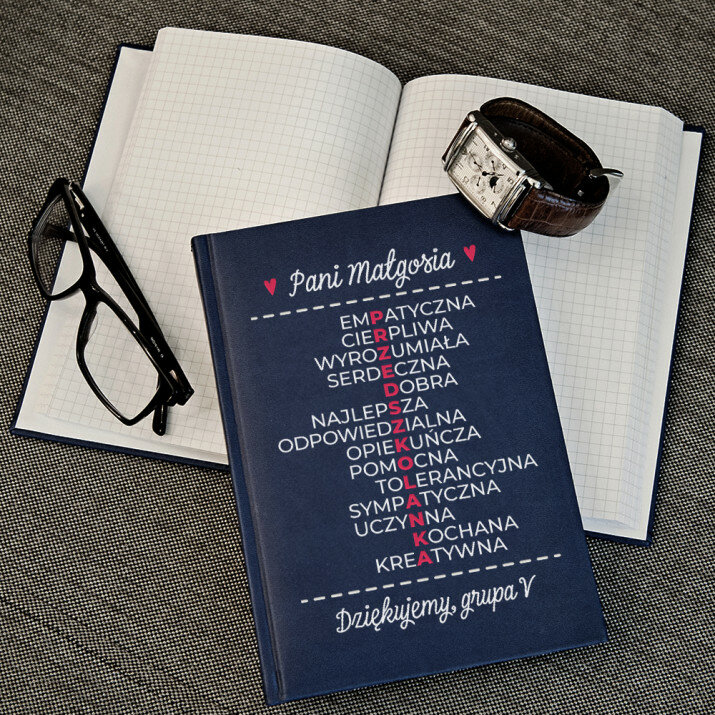 Pani Małgosia
EMPATYCZNA
CIERPLIWA
WYROZUMIAŁA
SERDECZNA
DOBRA
NAJLEPSZA
ODPOWIEDZIALNA
OPIEKUŃCZA
POMOCNA
TOLERANCYJNA
SYMPATYCZNA
UCZYNNA
KOCHANA
KREATYWNA
Dziękujemy, grupa V